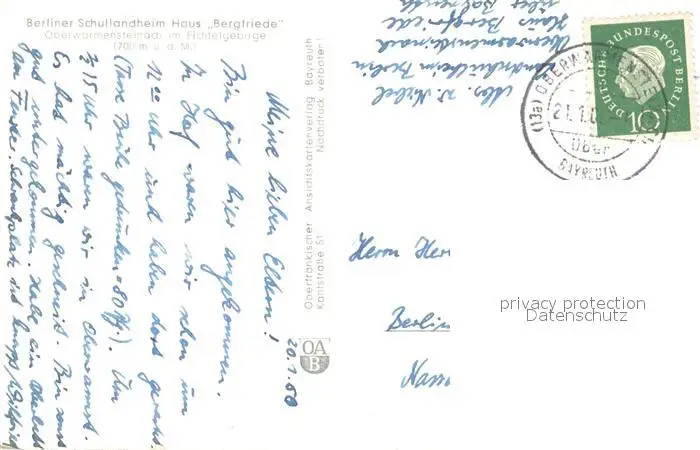 Berliner Schullandheim Haus „Bergfriede"
Oberwarmensteinach im Fichtelgebirge
(700 m ü. d. M.)
20.1.60
Meine lieben Eltern!
Bin gut hier angekommen.
In Hof waren wir schon um
12 Uhr und haben dort gerastet.
(Tasse Brühe getrunken = 80 Pf). Um
½ 15 Uhr waren wir in Oberwarmst.
Es hat mächtig geschneit. Bin sonst
gut untergekommen. Habe ein
am Fenster.
Oberfränkischer Ansichtskartenverlag Bayreuth
Kantstraße 51 Nachdruck verboten!
OA
B
Abs. W.
Landschulheim Berlin
Oberwarmensteinach
Haus Bergfriede
über Bayreuth
DEUTSCHE BUNDESPOST BERLIN
10
(13a) OBERWARMENSTEI
21.1.6
über
BAYREUTH
Herrn
Berlin
Nass
privacy protection
Datenschutz